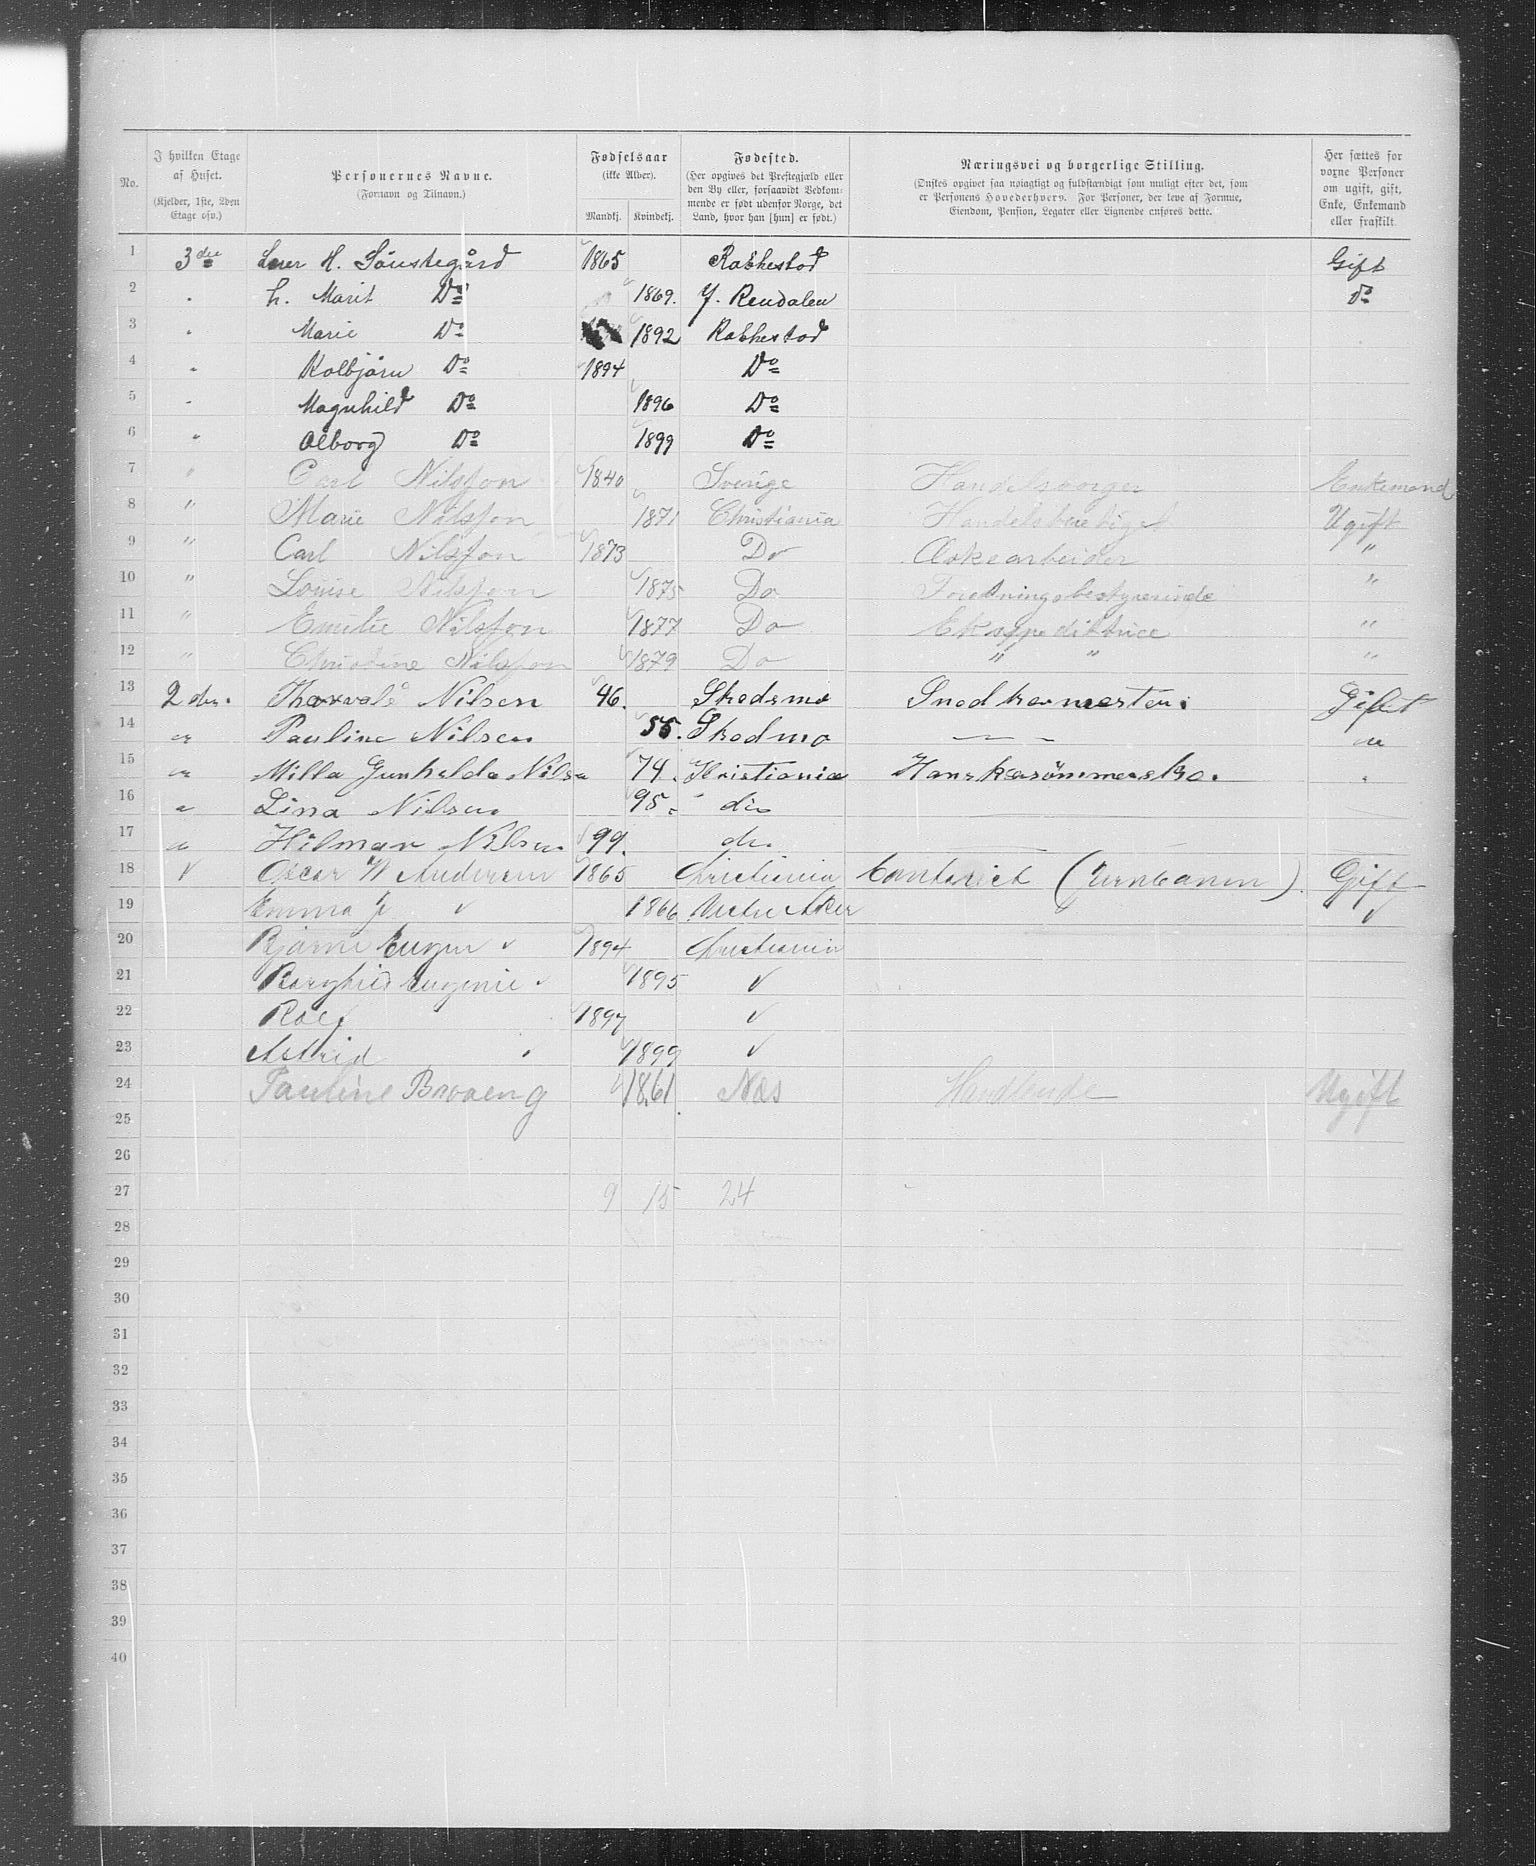 No.
I hvilken Etage af Huset. (Kjelder, 1ste, 2den Etage osv.)
Personernes Navne. (Fornavn og Tilnavn.)
Fødselsaar (ikke Alder). Mandkj. Kvindekj.
Fødested. (Her opgives det Prestegjæld eller den By eller, forsaavidt Vedkommende er født udenfor Norge, det Land, hvor han [hun] er født.)
Næringsvei og borgerlige Stilling. (Ønskes opgivet saa nøiagtigt og fuldstændigt som muligt efter det, som er Personens Hovederhverv. For Personer, der leve af Formue, Eiendom, Pension, Legater eller Lignende anføres dette.)
Her sættes for voxne Personer om ugift, gift, Enke, Enkemand eller fraskilt.
1 3die H. Sønstegård 1865 Rakkestad Gift
2 " h. Marit Do 1869. Y. Rendalen Do
3 " Marie Do 1892 Rakkestad
4 " Kolbjørn Do 1894 Do
5 " Magnhild Do 1896 Do
6 " Ålborg Do 1899 Do
7 " Carl Nilsson 1840 Sverige Handelsborger Enkemand
8 " Marie Nilsson 1871 Christiania Handelsbetjent Ugift
9 " Carl Nilsson 1873 Do Æskearbeider "
10 " Louise Nilsson 1875 Do Forretningsbestyrerinde "
11 " Emilie Nilsson 1877 Do Ekspeditrice "
12 " Christine Nilsson 1879 Do " " "
13 2den. Thorvald Nilsen 46. Skedsmo Snedkermester. Gift
14 " Pauline Nilsen 55. Skedmo — — — "
15 " Milla Gunhilda Nilsen 74. Kristiania Hanskesømmerske.
16 " Lina Nilsen 95. do
17 " Hilmar Nilsen 99. do.
18 √ Oscar W Andersen 1865 Christiania Contorist (Jernbanen) Gift
19 Emma J. √ 1866 Vestre Aker √
20 Bjarne Eugen √ 1894 Christiania
21 Borghild Eugenie √ 1895 √
22 Rolf 1897 √
23 Astrid √ 1899 √
24 Pauline Braaeng 1861. Næs Handlende Ugift
25
26
27 9 15 24
28
29
30
31
32
33
34
35
36
37
38
39
40